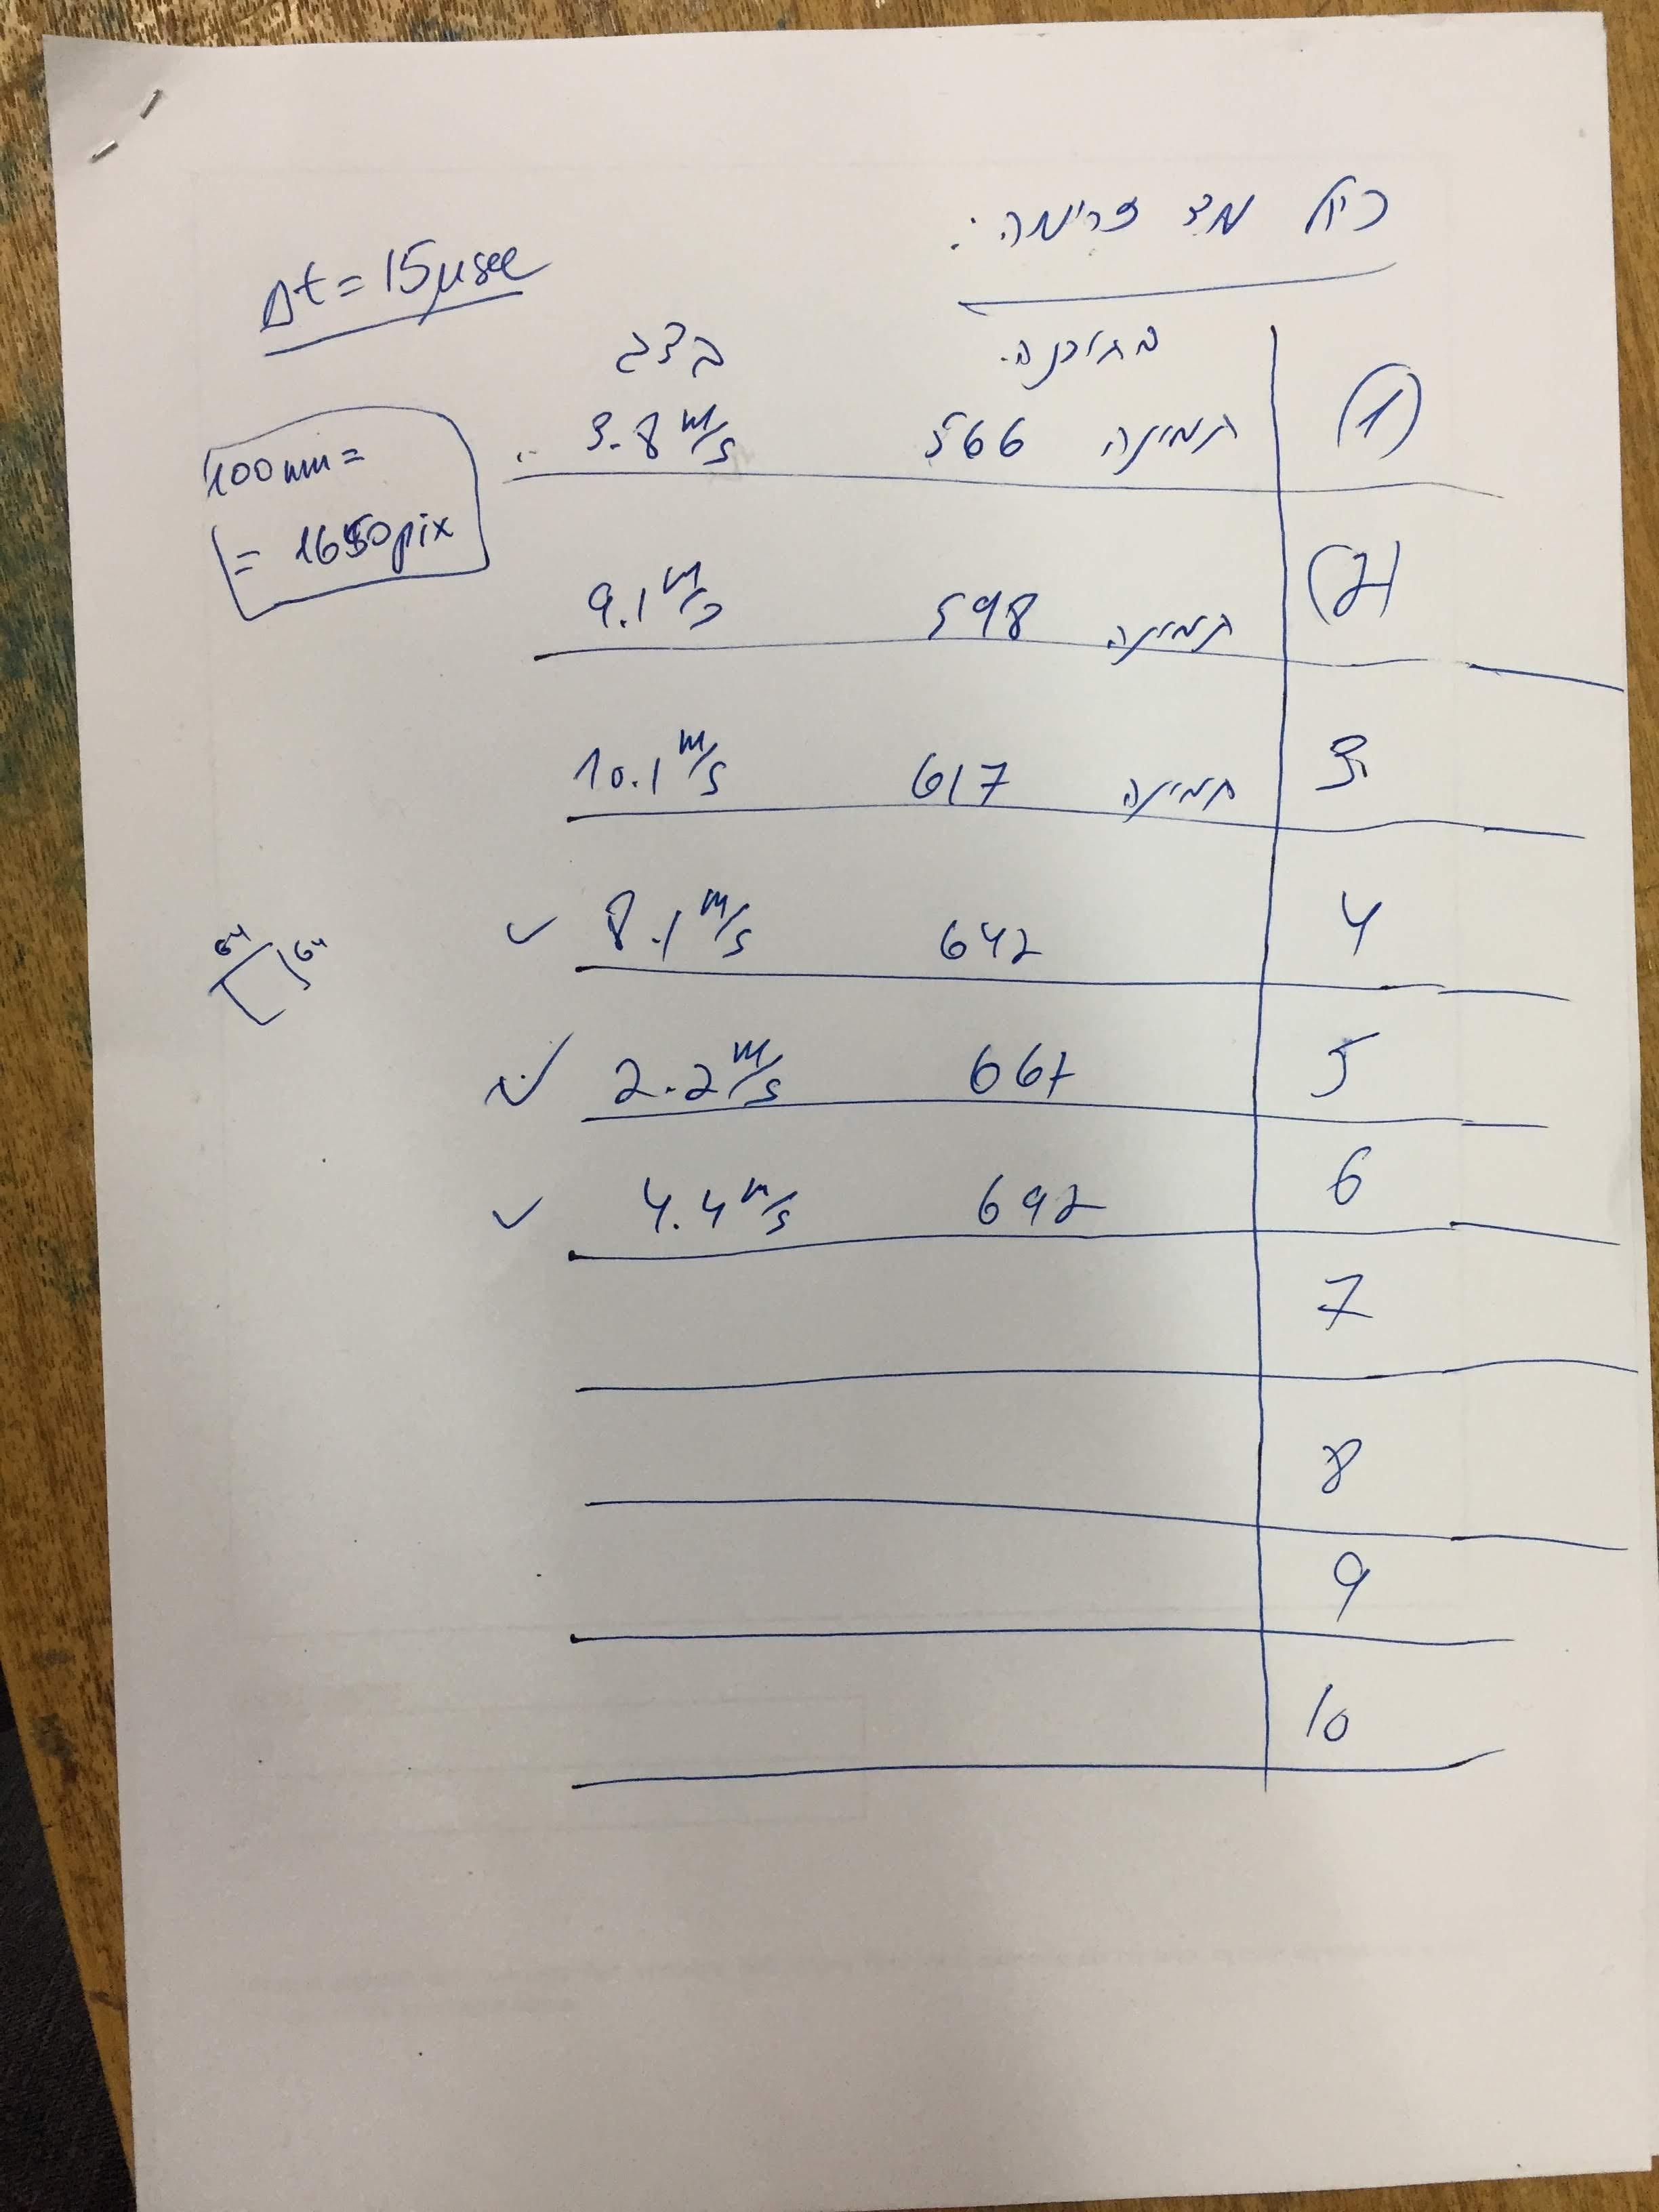 כיול מד זרימה:
Δt = 15 μsec
בתוכנה בצג
100mm =
= 1650 pix
(1) תמונה 566 3.8 m/s
(2) תמונה 598 9.1 m/s
3 תמונה 617 10.1 m/s
4 642 8.1 m/s ✓
5 667 2.2 m/s ✓
6 692 4.4 m/s ✓
7
8
9
10